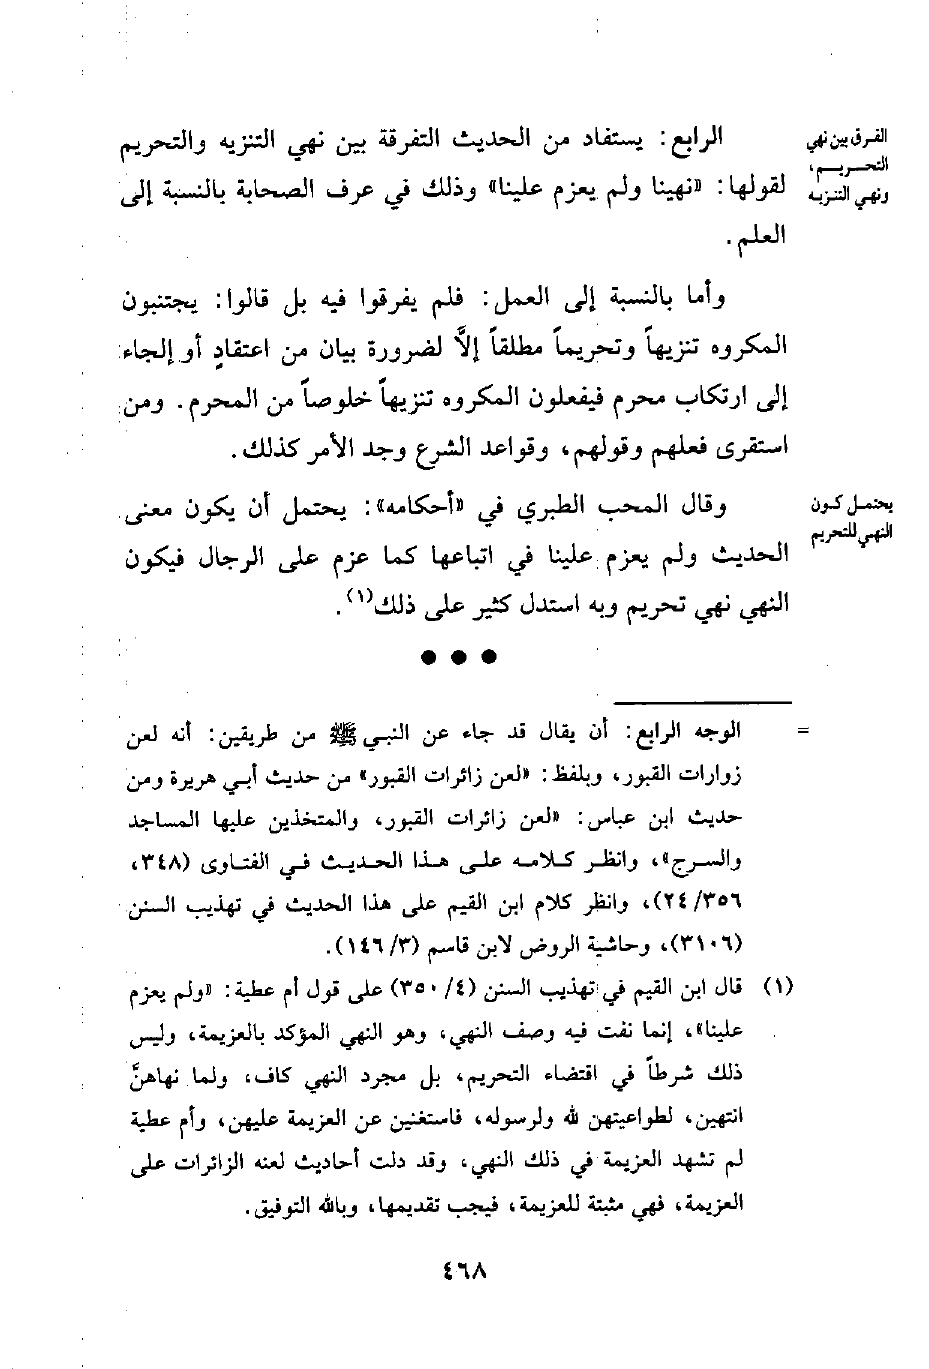 الفرق بين نهي
التحريم،
ونهي التنزيه
الرابع: يستفاد من الحديث التفرقة بين نهي التنزيه والتحريم
لقولها: «نهينا ولم يعزم علينا» وذلك في عرف الصحابة بالنسبة إلى
العلم.
وأما بالنسبة إلى العمل: فلم يفرقوا فيه بل قالوا: يجتنبون
المكروه تنزيهاً وتحريماً مطلقاً إلاَّ لضرورة بيان من اعتقادٍ أو إلجاء
إلى ارتكاب محرم فيفعلون المكروه تنزيهاً خلوصاً من المحرم. ومن
استقرى فعلهم وقولهم، وقواعد الشرع وجد الأمر كذلك.
يحتمل كون
النهي للتحريم
وقال المحب الطبري في «أحكامه»: يحتمل أن يكون معنى
الحديث ولم يعزم علينا في اتباعها كما عزم على الرجال فيكون
النهي نهي تحريم وبه استدل كثير على ذلك(١).
● ● ●
= الوجه الرابع: أن يقال قد جاء عن النبي ﷺ من طريقين: أنه لعن
زوارات القبور، وبلفظ: «لعن زائرات القبور» من حديث أبي هريرة ومن
حديث ابن عباس: «لعن زائرات القبور، والمتخذين عليها المساجد
والسرج»، وانظر كلامه على هذا الحديث في الفتاوى (٣٤٨،
٢٤/٣٥٦)، وانظر كلام ابن القيم على هذا الحديث في تهذيب السنن
(٣١٠٦)، وحاشية الروض لابن قاسم (١٤٦/٣).
(١) قال ابن القيم في تهذيب السنن (٣٥٠/٤) على قول أم عطية: «ولم يعزم
علينا»، إنما نفت فيه وصف النهي، وهو النهي المؤكد بالعزيمة، وليس
ذلك شرطاً في اقتضاء التحريم، بل مجرد النهي كاف، ولما نهاهنَّ
انتهين، لطواعيتهن لله ولرسوله، فاستغنين عن العزيمة عليهن، وأم عطية
لم تشهد العزيمة في ذلك النهي، وقد دلت أحاديث لعنه الزائرات على
العزيمة، فهي مثبتة للعزيمة، فيجب تقديمها، وبالله التوفيق.
٤٦٨